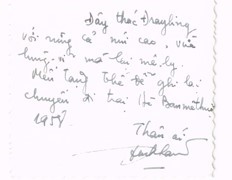 Đây thác Drayling
với rừng cả núi cao, vừa
hùng vĩ mà lại mê ly.
Mến tặng thế để ghi lại
chuyến đi trại Hè Banmêthuột
1958
Thân ái